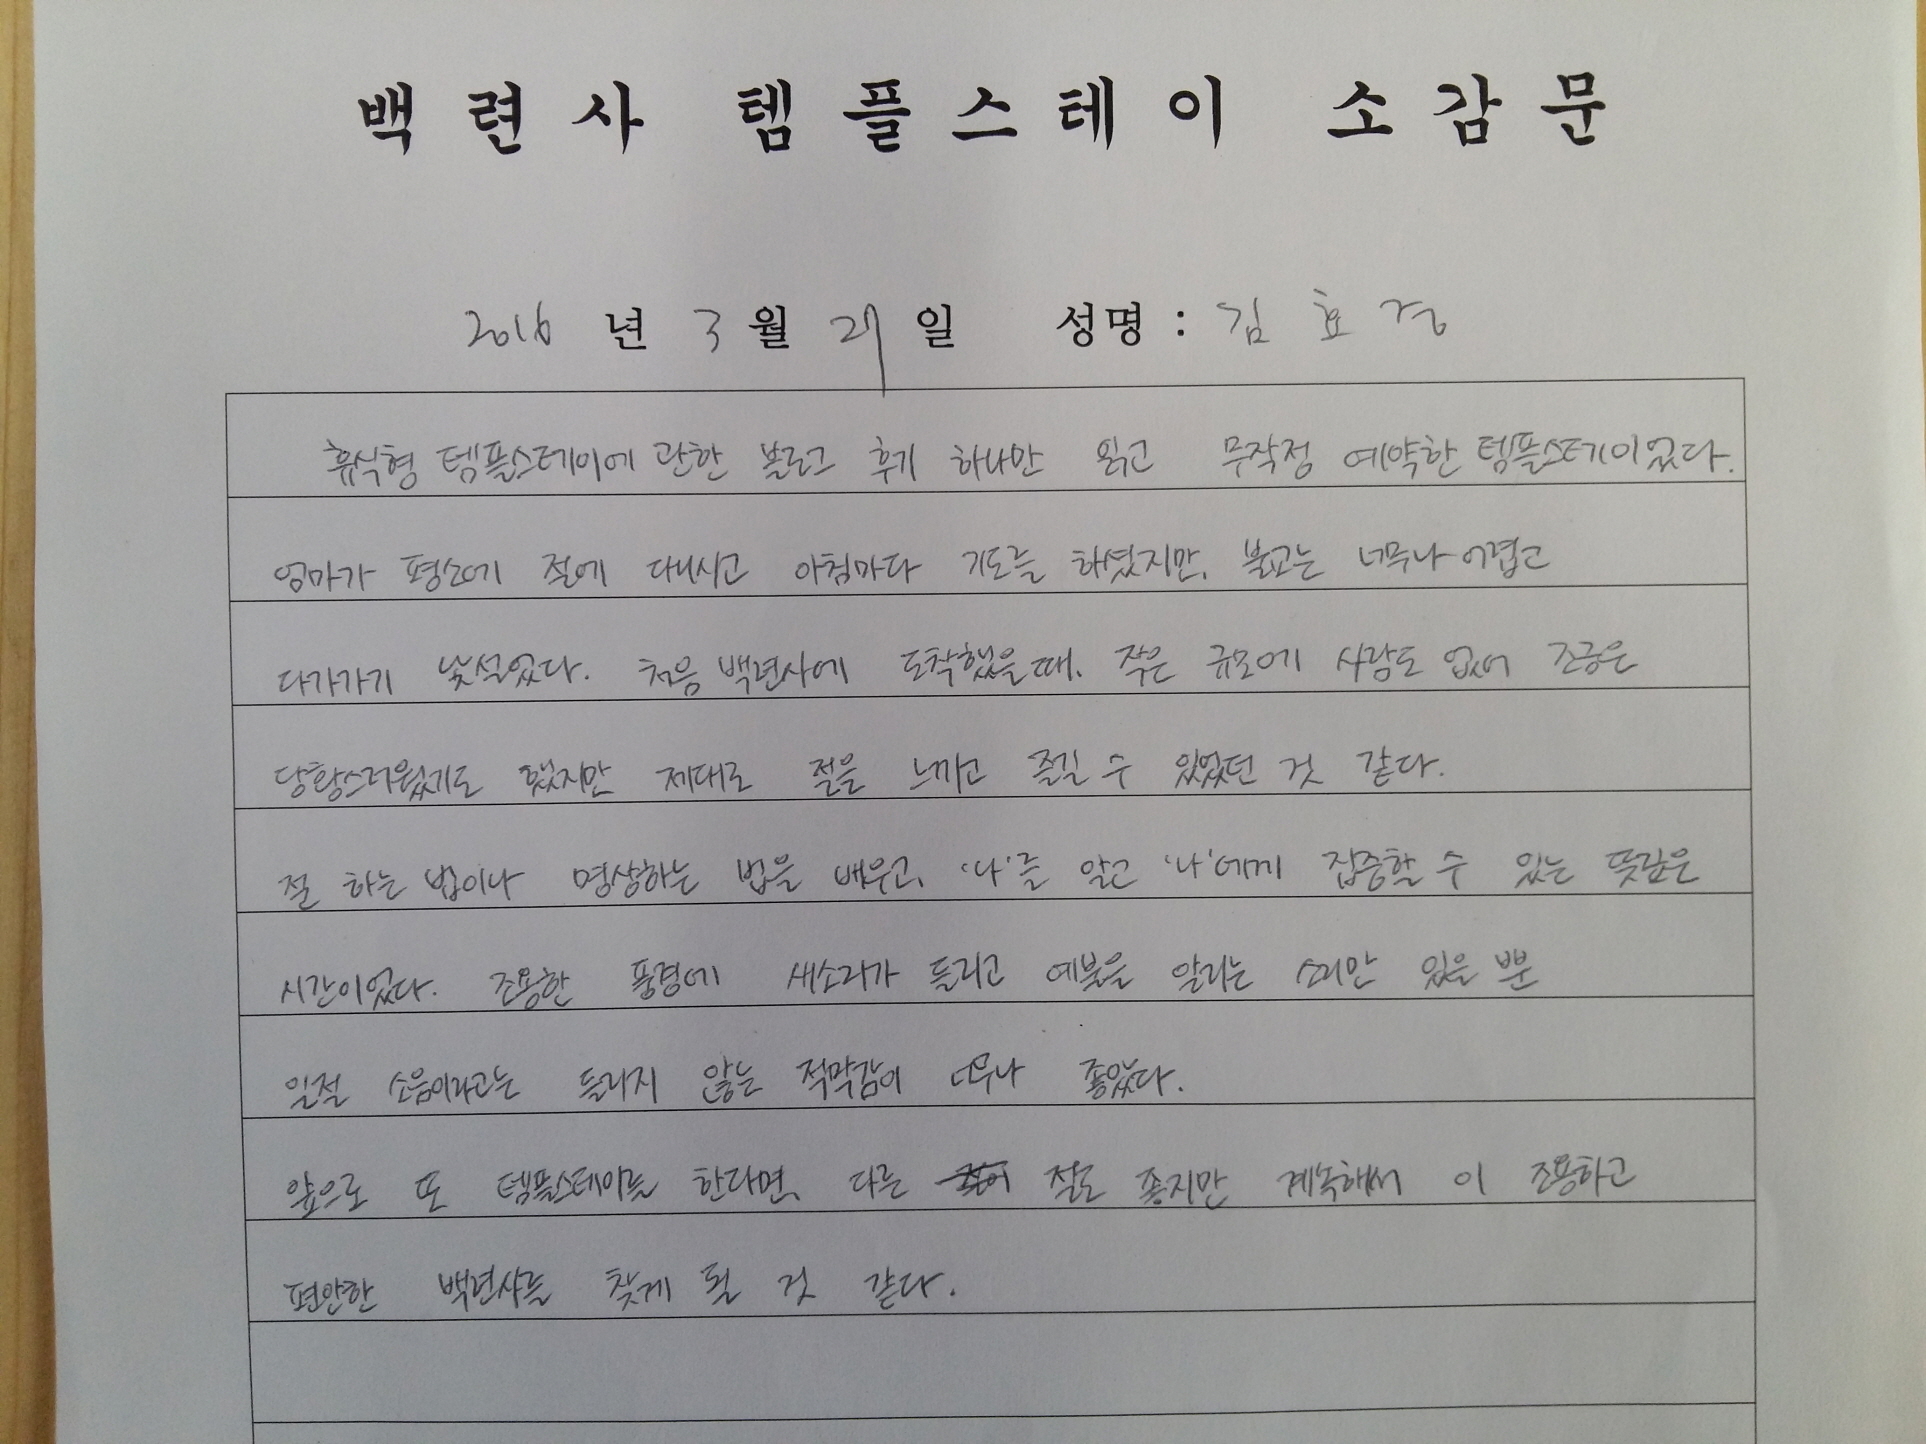 백련사 템플스테이 소감문
2016 년 3 월 29 일 성명 : 김효경
휴식형 템플스테이에 관한 블로그 후기 하나만 읽고 무작정 예약한 템플스테이였다.
엄마가 평소에 절에 다니시고 아침마다 기도를 하셨지만, 불교는 너무나 어렵고
다가가기 낯설었다. 처음 백련사에 도착했을 때, 작은 규모에 사람도 없어 조금은
당황스러웠기도 했지만 제대로 절을 느끼고 즐길 수 있었던 것 같다.
절 하는 법이나 명상하는 법을 배우고, '나'를 알고 '나'에게 집중할 수 있는 뜻깊은
시간이었다. 조용한 풍경에 새소리가 들리고 예불을 알리는 소리만 있을 뿐
일절 소음이라고는 들리지 않는 적막감이 너무나 좋았다.
앞으로 또 템플스테이를 한다면, 다른 절도 좋지만 계속해서 이 조용하고
편안한 백련사를 찾게 될 것 같다.